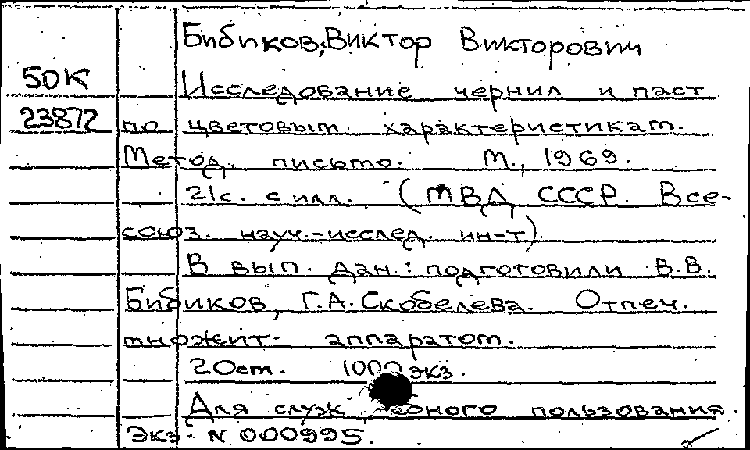 Бибиков, Виктор Викторович
50К
Исследование чернил и паст
23872
по цветовым характеристикам.
Метод. письмо. М., 1969.
21с. с илл. (МВД СССР. Все-
союз. науч.-исслед. ин-т)
В вып. дан.: подготовили В.В.
Бибиков, Г.А. Скобелева. Отпеч.
множит. аппаратом.
20см. 1000 экз.
Для пользования.
Экз. N 000995.